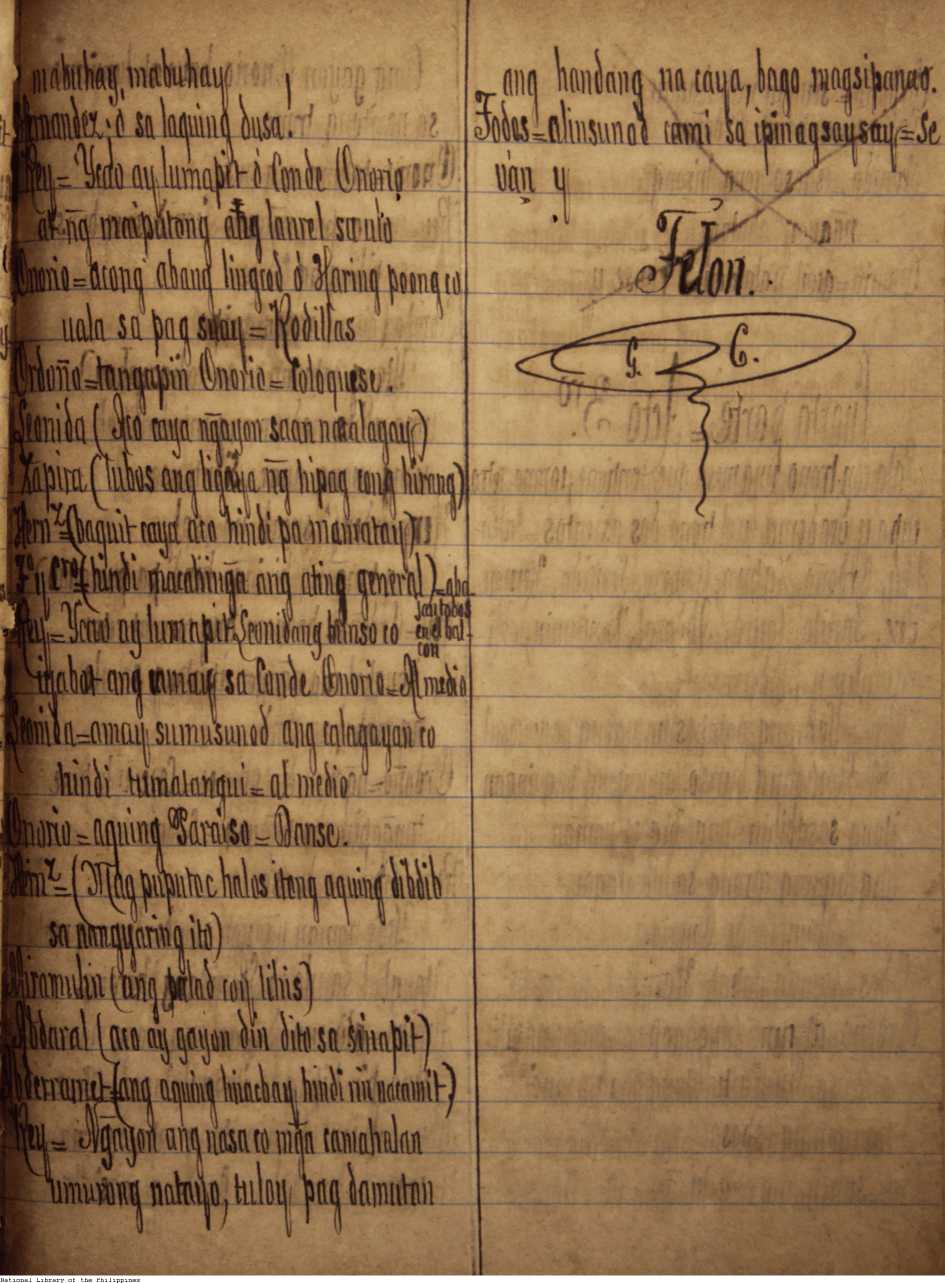 mabuhay, mabuhay
Hernandez: ó sa laquing dusa!
Rey = Ycao ay lumapit ó Conde Onorio
at ñg maipatong ang laurel sa ulo
Onorio = acong abang lingcod ó Haring poong co
uala sa pag suay = Rodillas
Ordoño = tangapin Onorio = Coloquese.
Leonida ( Aco caya ñgayon saan nacalagay )
Zapira ( lubos ang ligaya ñg hipag cong hirang )
Hernz = ( baquit caya aco hindi pa mamatay )
Fo y Cro ( hindi macahiñga ang ating general ) = aba
jan todos
en el bal-
con
Rey = Ycao ay lumapit Leonidang bunso co
iyabot ang camay sa Conde Onorio = Al medio
Leonida = amay, sumusunod ang calagayan co
hindi tumatangui = al medio
Onorio = aquing Paraiso = Danse.
Hernz = ( Mag puputoc halos iteng aquing dibdib
sa nangyaring ito )
Miramulin ( ang palad coy, lihis )
Abdaral ( aco ay gayon din dito sa sinapit )
Abderramet ( ang aquing hinacbay, hindi rin nacamit )
Rey = Ñgayon ang nasa co mña camahalan
umurong natayo, tuloy pag damutan
ang handang na caya, bago magsipanao.
Todos = alinsunod cami sa ipinagsaysay = Se
ván y
Telon.
G. C.
National Library of the Philippines